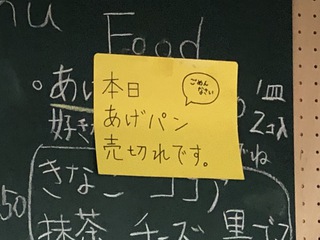 nu Food
本日
あげパン
売切れです。
ごめん
なさい
あ
1皿
好き
2コ入
ね
きなこ ココア
50
抹茶 チーズ 黒ゴマ